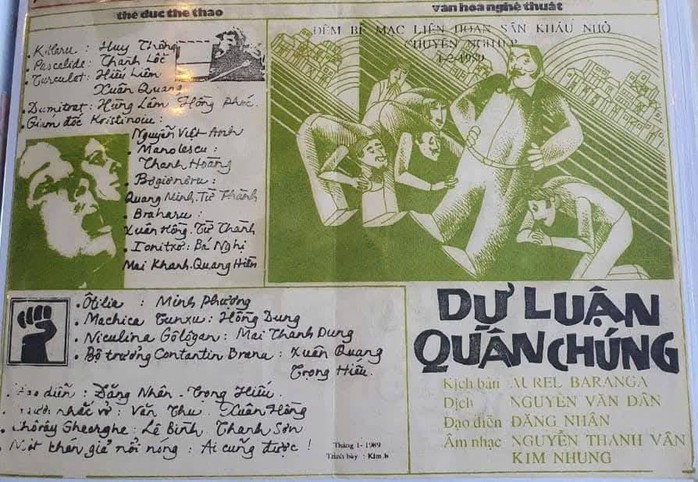 thể dục thể thao
văn hóa nghệ thuật
Kitlaru : Huy Thông
Pascalide : Thanh Lốc
Turculet : Hiếu Liêm
Xuân Quang
Dumitrat : Hùng Lâm Hồng Phúc.
Giám đốc Kristinoiu :
Nguyễn Việt Anh
Manolescu :
Thanh Hoàng
Bogoianoru :
Quang Minh. Từ Thành
Braharu :
Xuân Hồng. Từ Thành
Ionitrơ : Bá Nghị
Mai Khanh. Quang Hiền
ĐÊM BẾ MẠC LIÊN HOAN SÂN KHẤU NHỎ
CHUYÊN NGHIỆP
1-2-1989
Ôtilia : Minh Phượng
Machica Tunxu : Hồng Dung
Niculina Gôlôgan : Mai Thanh Dung
Bộ trưởng Contantin Brana : Xuân Quang
Trọng Hiếu.
diễn : Đặng Nhân. Trọng Hiếu.
nhắc vở : Vân Thu. Xuân Hồng
Gheorghe : Lê Bình Thanh Sơn
Một khán giả nổi nóng : Ai cũng được !
Tháng 1-1989
Trình bày : Kim.b
DƯ LUẬN
QUẦN CHÚNG
Kịch bản AUREL BARANGA
Dịch NGUYỄN VĂN DÂN
Đạo diễn ĐẶNG NHÂN
Âm nhạc NGUYỄN THANH VÂN
KIM NHUNG